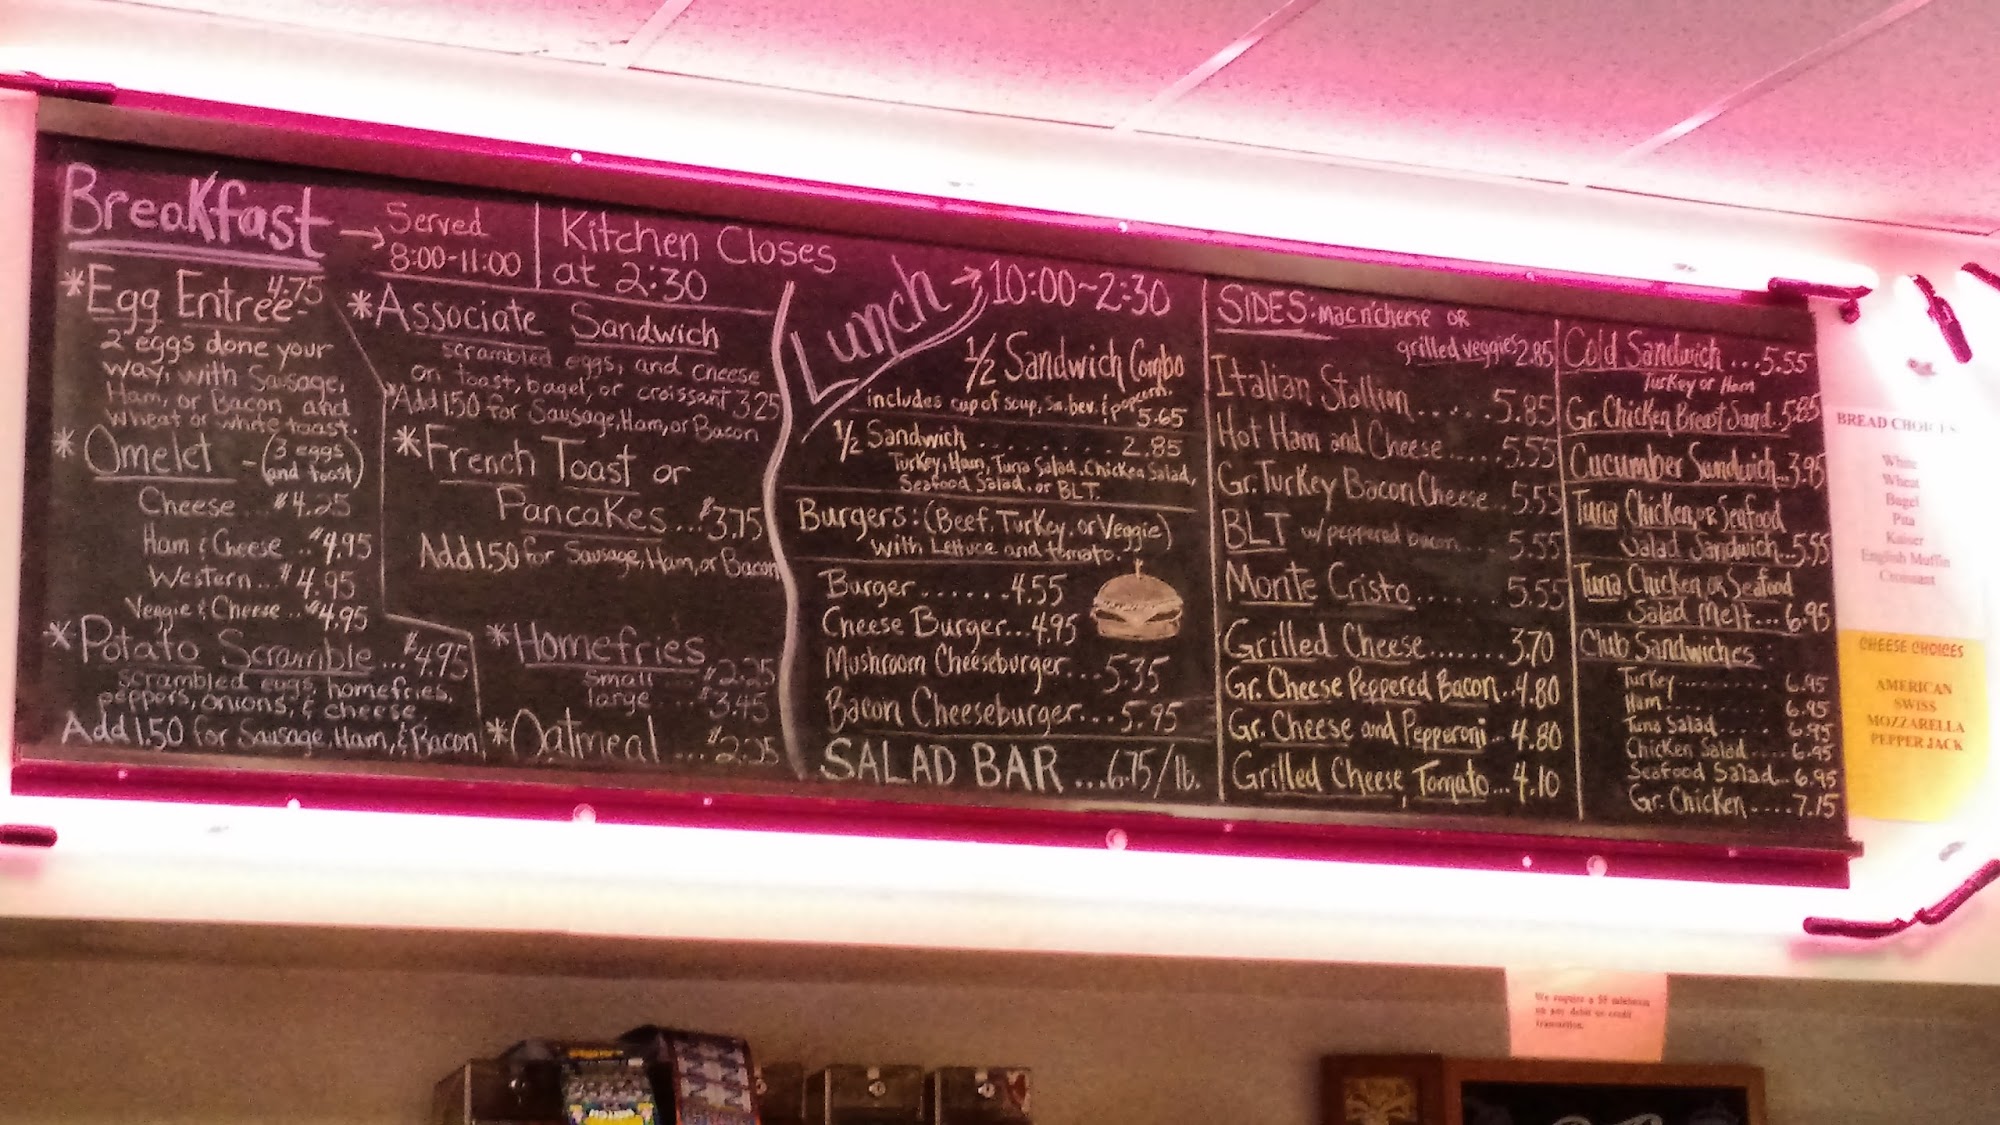 Breakfast → Served
8:00-11:00
Kitchen Closes
at 2:30
*Egg Entree- 4.75
2 eggs done your
way, with Sausage,
Ham, or Bacon and
wheat or white toast.
*Omelet - (3 eggs
and toast)
Cheese ..$4.25
Ham & Cheese ..$4.95
Western...$4.95
Veggie & Cheese ..$4.95
*Potato Scramble ...$4.95
scrambled eggs, homefries,
peppers, onions, & cheese
Add 1.50 for Sausage, Ham, & Bacon
*Associate Sandwich
scrambled eggs, and cheese
on toast, bagel, or croissant 3.25
*Add 1.50 for Sausage, Ham, or Bacon
*French Toast or
Pancakes...$3.75
Add 1.50 for Sausage, Ham, or Bacon
*Homefries
small ....$2.25
large ....$3.45
*Oatmeal ...$2.25
Lunch → 10:00~2:30
1/2 Sandwich Combo
includes cup of soup, Sm. bev. & popcorn.
5.65
1/2 Sandwich ........ 2.85
Turkey, Ham, Tuna Salad, Chicken Salad,
Seafood Salad, or BLT.
Burgers: (Beef, Turkey, or Veggie)
with Lettuce and tomato.
Burger.......4.55
Cheese Burger...4.95
Mushroom Cheeseburger...5.35
Bacon Cheeseburger...5.95
SALAD BAR ...6.75/lb.
SIDES: mac n'cheese or
grilled veggies 2.85
Italian Stallion.....5.85
Hot Ham and Cheese.....5.55
Gr. Turkey Bacon Cheese..5.55
BLT w/peppered bacon....5.55
Monte Cristo.......5.55
Grilled Cheese.......3.70
Gr. Cheese Peppered Bacon..4.80
Gr. Cheese and Pepperoni..4.80
Grilled Cheese, Tomato...4.10
Cold Sandwich ...5.55
Turkey or Ham
Gr. Chicken Breast Sand..5.85
Cucumber Sandwich..3.95
Tuna, Chicken, or Seafood
Salad Sandwich..5.55
Tuna, Chicken, or Seafood
Salad Melt...6.95
Club Sandwiches:
Turkey.........6.95
Ham..........6.95
Tuna Salad.....6.95
Chicken Salad....6.95
Seafood Salad..6.95
Gr. Chicken....7.15
BREAD CHOICES
White
Wheat
Bagel
Pita
Kaiser
English Muffin
Croissant
CHEESE CHOICES
AMERICAN
SWISS
MOZZARELLA
PEPPER JACK
We require a $5 minimum
on any debit or credit
transaction.